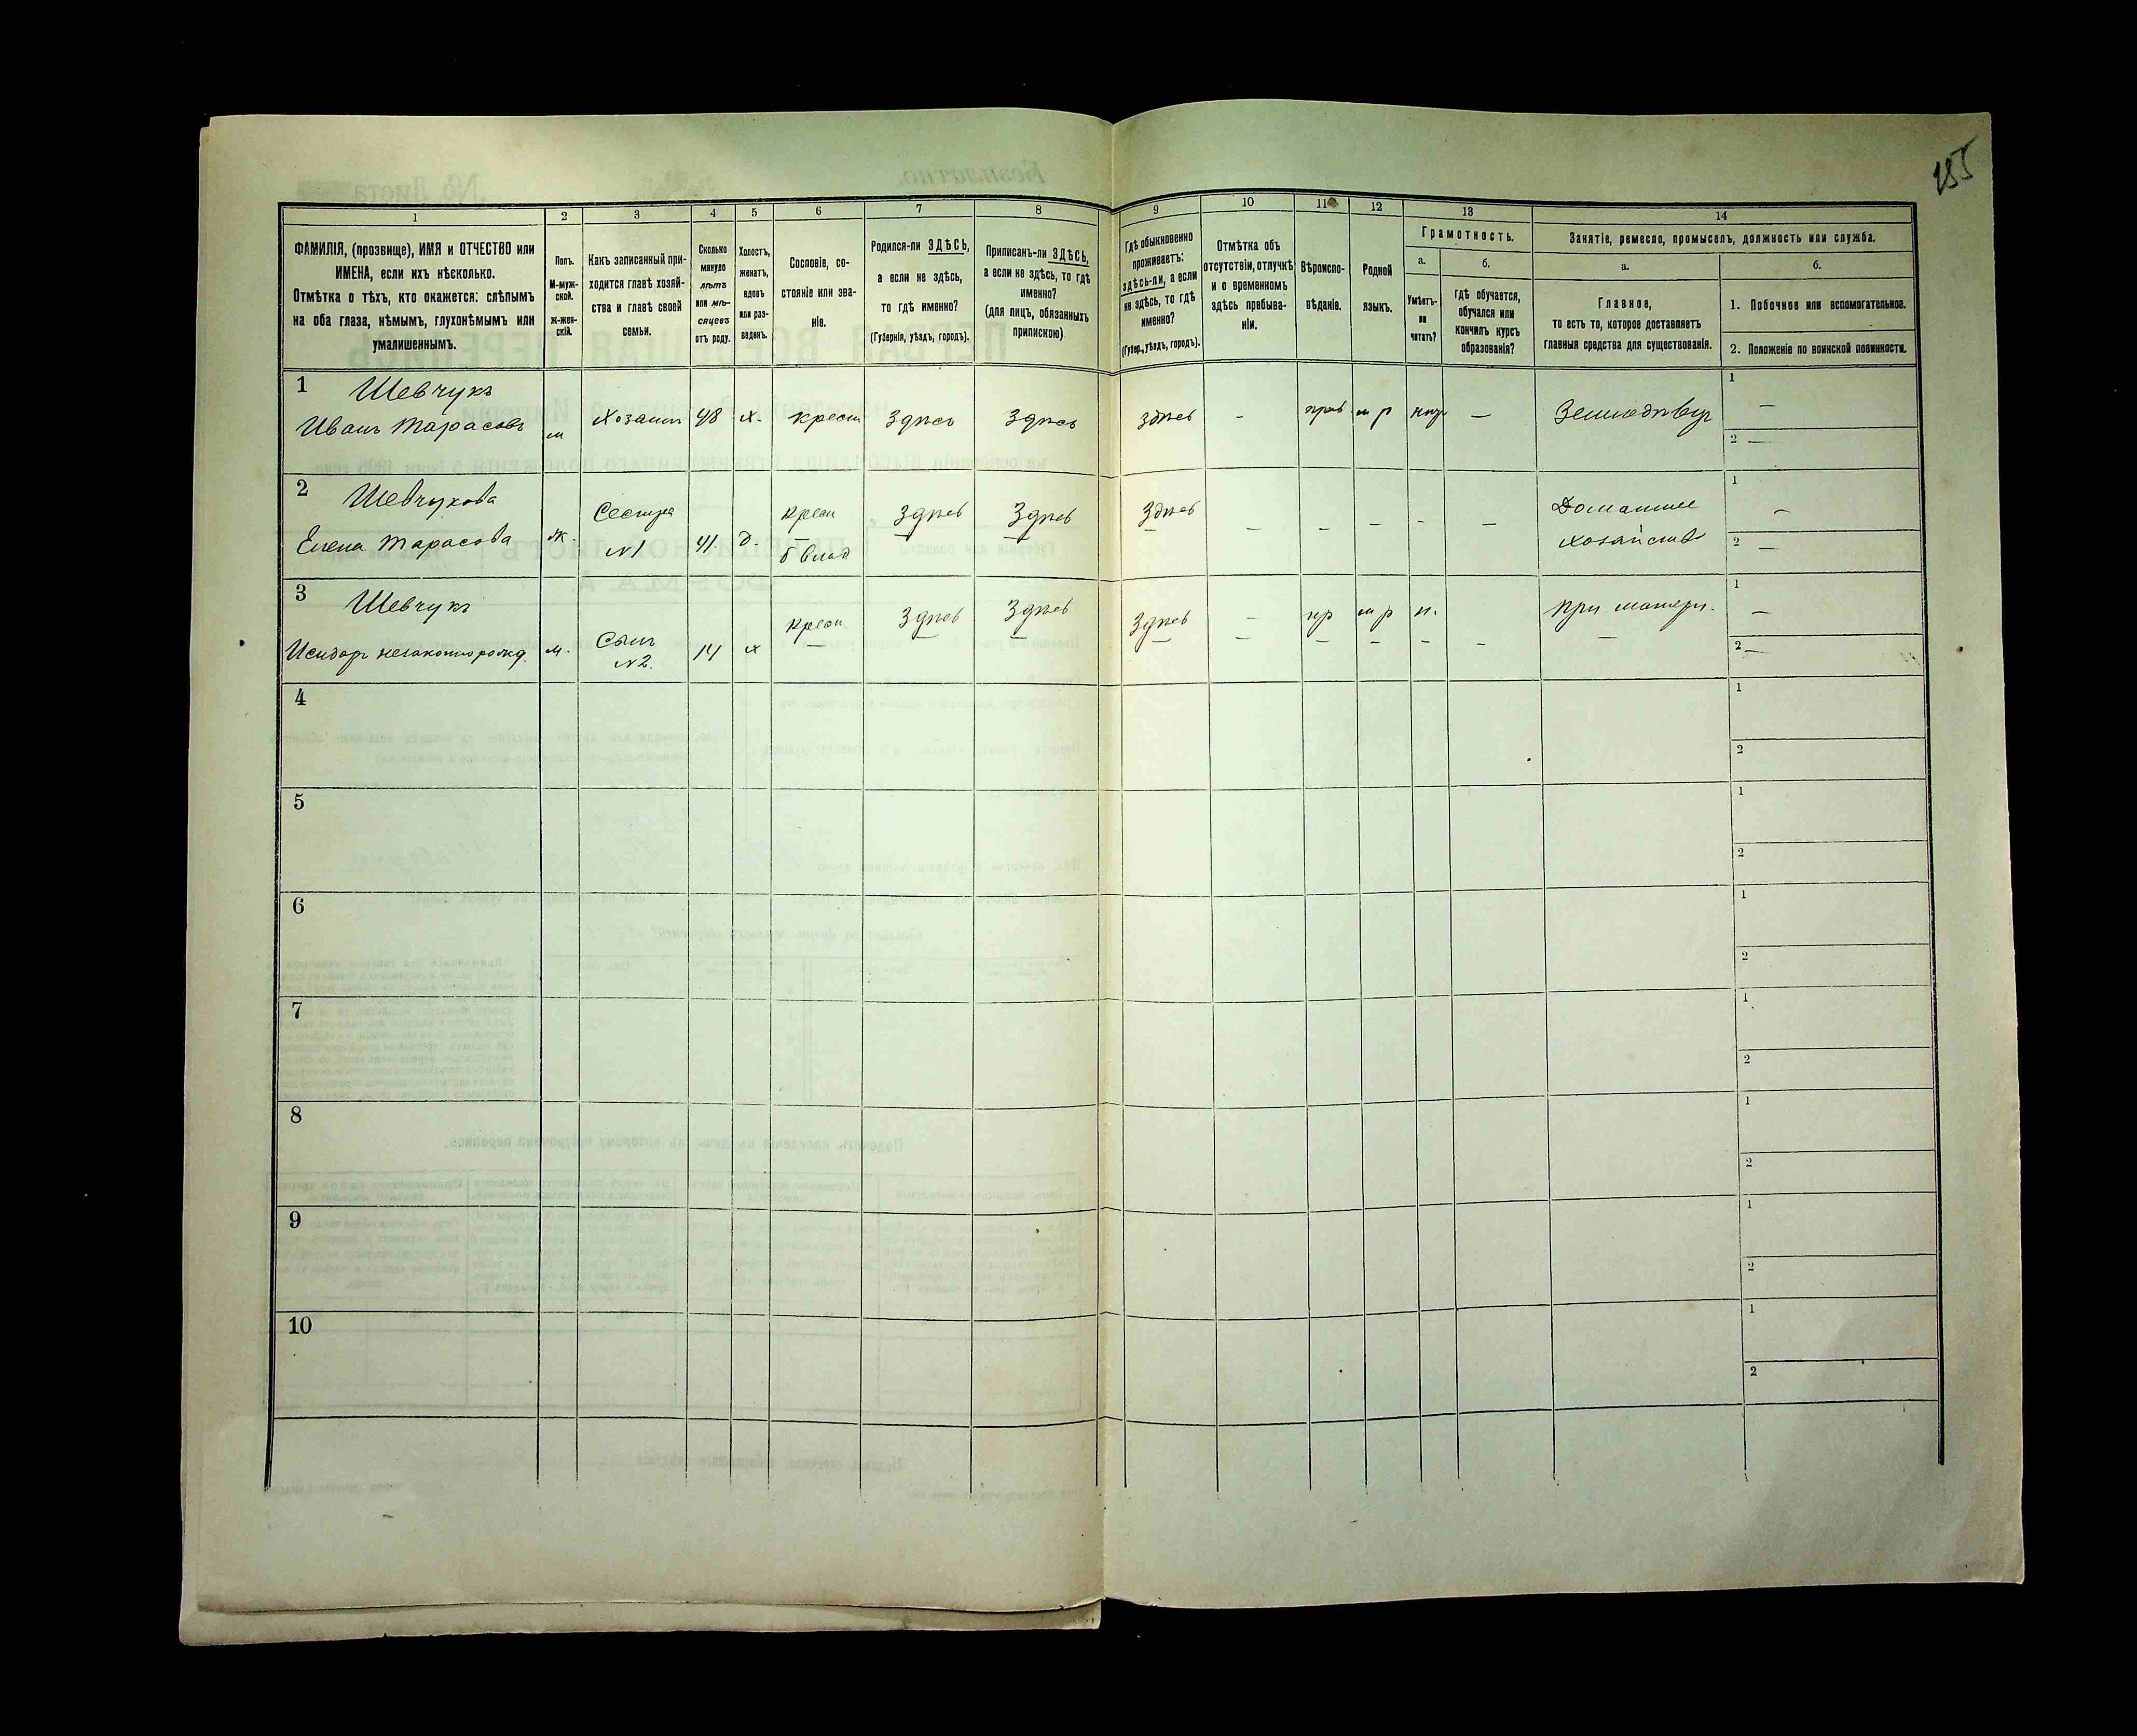 185
1
2
3
4
5
6
7
8
9
10
11
12
13
14
ФАМИЛІЯ, (прозвище), ИМЯ и ОТЧЕСТВО или
ИМЕНА, если ихъ нѣсколько.
Отмѣтка о тѣхъ, кто окажется: слѣпымъ
на оба глаза, нѣмымъ, глухонѣмымъ или
умалишеннымъ.
Полъ.
М-муж-
ской.
ж-жен-
скій.
Какъ записанный при-
ходится главѣ хозяй-
ства и главѣ своей
семьи.
Сколько
минуло
лѣтъ
или мѣ-
сяцевъ
отъ роду.
Холостъ,
женатъ,
вдовъ
или раз-
веденъ.
Сословіе, со-
стояніе или зва-
ніе.
Родился-ли ЗДѢСЬ,
а если не здѣсь,
то гдѣ именно?
(Губернія, уѣздъ, городъ).
Приписанъ-ли ЗДѢСЬ,
а если не здѣсь, то гдѣ
именно?
(для лицъ, обязанныхъ
припискою)
Гдѣ обыкновенно
проживаетъ:
здѣсь-ли, а если
не здѣсь, то гдѣ
именно?
(Губер., уѣздъ, городъ).
Отмѣтка объ
отсутствіи, отлучкѣ
и о временномъ
здѣсь пребыва-
ніи.
Вѣроиспо-
вѣданіе.
Родной
языкъ.
Грамотность.
а.
Умѣетъ-
ли
читать?
б.
Гдѣ обучается,
обучался или
кончилъ курсъ
образованія?
Занятіе, ремесло, промыселъ, должность или служба.
а.
Главное,
то есть то, которое доставляетъ
главныя средства для существованія.
б.
1. Побочное или вспомогательное.
2. Положеніе по воинской повинности.
1 Шевчукъ
Иванъ Тарасовъ м Хозаин 48 х. крест Здѣсь Здѣсь здѣсь - прав м р нѣт — Земледѣлец
1 —
2 —
2 Шевчукова
Елена Тарасова ж. Сестра №1 41. д. крест Здѣсь Здѣсь Здѣсь — — — - —
Домашнее
хозяйств
1 –
2 —
3 Шевчукъ
Исидор незаконнорожд. м. Сын №2. 14 х крест Здѣсь Здѣсь Здѣсь — пр м р н. - при матери.
1 —
2 —
4
1
2
5
1
2
6
1
2
7
1
2
8
1
2
9
1
2
10
1
2